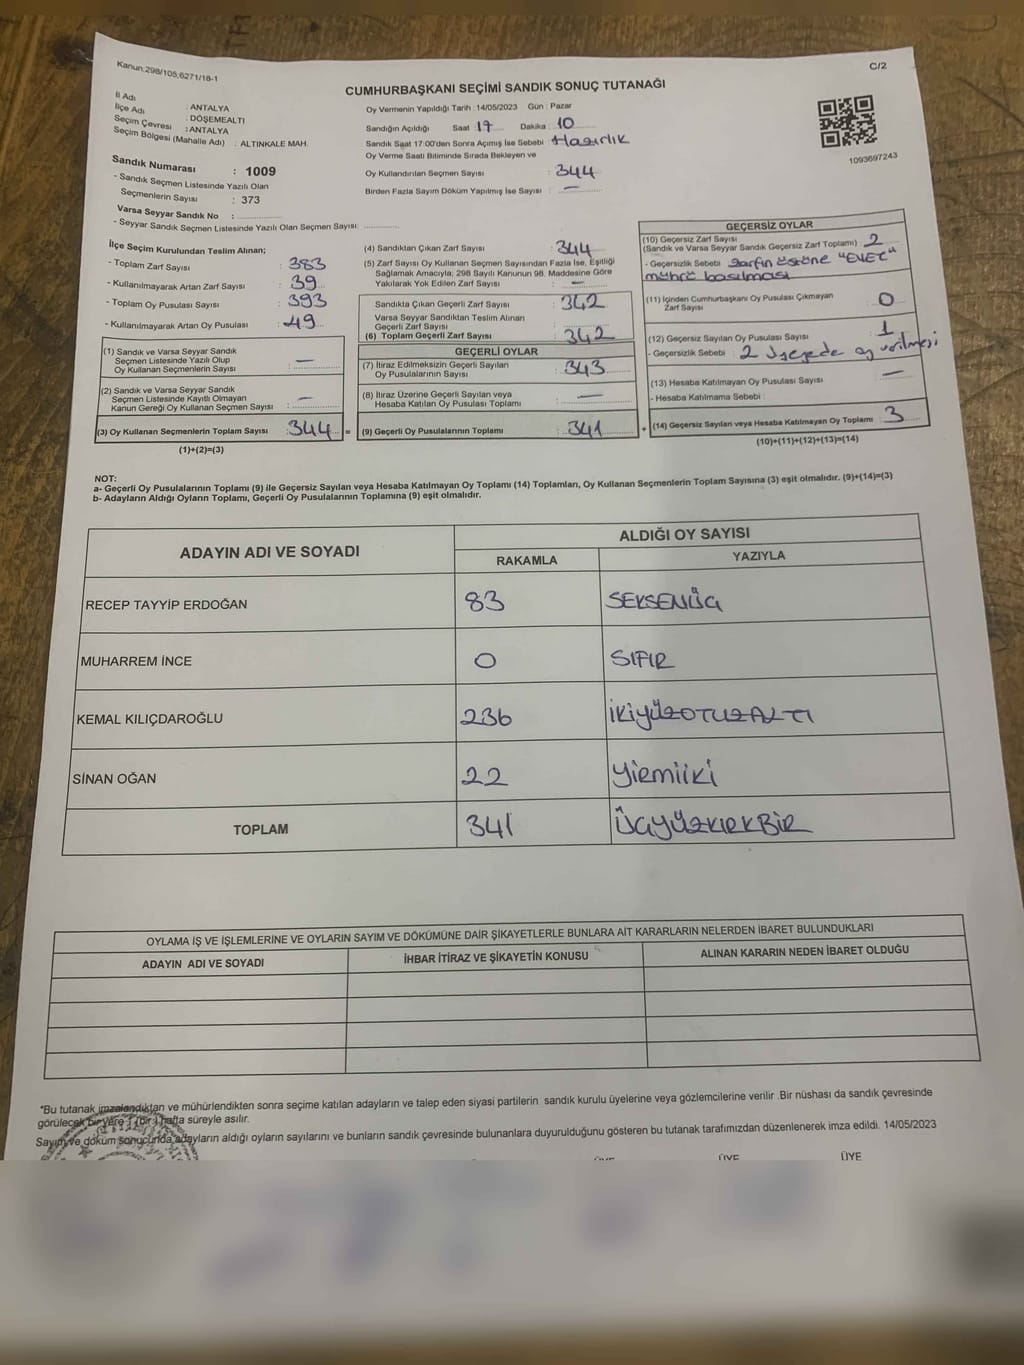 Kanun:298/105,6271/18-1
C/2
CUMHURBAŞKANI SEÇİMİ SANDIK SONUÇ TUTANAĞI
İl Adı : ANTALYA
İlçe Adı : DÖŞEMEALTI
Seçim Çevresi : ANTALYA
Seçim Bölgesi (Mahalle Adı) : ALTINKALE MAH.
Sandık Numarası : 1009
- Sandık Seçmen Listesinde Yazılı Olan
Seçmenlerin Sayısı : 373
Varsa Seyyar Sandık No :
- Seyyar Sandık Seçmen Listesinde Yazılı Olan Seçmen Sayısı:
Oy Vermenin Yapıldığı Tarih : 14/05/2023 Gün : Pazar
Sandığın Açıldığı Saat : 17 Dakika : 10
Sandık Saat 17:00'den Sonra Açımış İse Sebebi : Hazırlık
Oy Verme Saati Bitiminde Sırada Bekleyen ve
Oy Kullandırılan Seçmen Sayısı : 344
Birden Fazla Sayım Döküm Yapılmış İse Sayısı : —
1093697243
İlçe Seçim Kurulundan Teslim Alınan;
- Toplam Zarf Sayısı : 383
- Kullanılmayarak Artan Zarf Sayısı : 39
- Toplam Oy Pusulası Sayısı : 393
- Kullanılmayarak Artan Oy Pusulası : 49
(1) Sandık ve Varsa Seyyar Sandık
Seçmen Listesinde Yazılı Olup
Oy Kullanan Seçmenlerin Sayısı : —
(2) Sandık ve Varsa Seyyar Sandık
Seçmen Listesinde Kayıtlı Olmayan
Kanun Gereği Oy Kullanan Seçmen Sayısı : —
(3) Oy Kullanan Seçmenlerin Toplam Sayısı : 344 =
(1)+(2)=(3)
(4) Sandıktan Çıkan Zarf Sayısı : 344
(5) Zarf Sayısı Oy Kullanan Seçmen Sayısından Fazla İse, Eşitliği
Sağlamak Amacıyla, 298 Sayılı Kanunun 98. Maddesine Göre
Yakılarak Yok Edilen Zarf Sayısı : —
Sandıkta Çıkan Geçerli Zarf Sayısı : 342
Varsa Seyyar Sandıktan Teslim Alınan
Geçerli Zarf Sayısı :
(6) Toplam Geçerli Zarf Sayısı : 342
GEÇERLİ OYLAR
(7) İtiraz Edilmeksizin Geçerli Sayılan
Oy Pusulalarının Sayısı : 343
(8) İtiraz Üzerine Geçerli Sayılan veya
Hesaba Katılan Oy Pusulası Toplamı : —
(9) Geçerli Oy Pusulalarının Toplamı : 341 +
GEÇERSİZ OYLAR
(10) Geçersiz Zarf Sayısı
(Sandık ve Varsa Seyyar Sandık Geçersiz Zarf Toplamı) : 2
- Geçersizlik Sebebi : Zarfın üstüne "EVET"
mührü basılması
(11) İçinden Cumhurbaşkanı Oy Pusulası Çıkmayan
Zarf Sayısı : 0
(12) Geçersiz Sayılan Oy Pusulası Sayısı : 1
- Geçersizlik Sebebi : 2 yerde oy verilmesi
(13) Hesaba Katılmayan Oy Pusulası Sayısı : —
- Hesaba Katılmama Sebebi :
(14) Geçersiz Sayılan veya Hesaba Katılmayan Oy Toplamı : 3
(10)+(11)+(12)+(13)=(14)
NOT:
a- Geçerli Oy Pusulalarının Toplamı (9) ile Geçersiz Sayılan veya Hesaba Katılmayan Oy Toplamı (14) Toplamları, Oy Kullanan Seçmenlerin Toplam Sayısına (3) eşit olmalıdır. (9)+(14)=(3)
b- Adayların Aldığı Oyların Toplamı, Geçerli Oy Pusulalarının Toplamına (9) eşit olmalıdır.
ADAYIN ADI VE SOYADI
ALDIĞI OY SAYISI
RAKAMLA YAZIYLA
RECEP TAYYİP ERDOĞAN 83 SEKSENÜÇ
MUHARREM İNCE 0 SIFIR
KEMAL KILIÇDAROĞLU 236 İKİYÜZOTUZALTI
SİNAN OĞAN 22 YİRMİİKİ
TOPLAM 341 ÜÇYÜZKIRKBİR
OYLAMA İŞ VE İŞLEMLERİNE VE OYLARIN SAYIM VE DÖKÜMÜNE DAİR ŞİKAYETLERLE BUNLARA AİT KARARLARIN NELERDEN İBARET BULUNDUKLARI
ADAYIN ADI VE SOYADI İHBAR İTİRAZ VE ŞİKAYETİN KONUSU ALINAN KARARIN NEDEN İBARET OLDUĞU
*Bu tutanak imzalandıktan ve mühürlendikten sonra seçime katılan adayların ve talep eden siyasi partilerin sandık kurulu üyelerine veya gözlemcilerine verilir .Bir nüshası da sandık çevresinde
görülecek bir yere 1 (bir ) hafta süreyle asılır.
Sayım ve döküm sonucunda adayların aldığı oyların sayılarını ve bunların sandık çevresinde bulunanlara duyurulduğunu gösteren bu tutanak tarafımızdan düzenlenerek imza edildi. 14/05/2023
ÜYE ÜYE